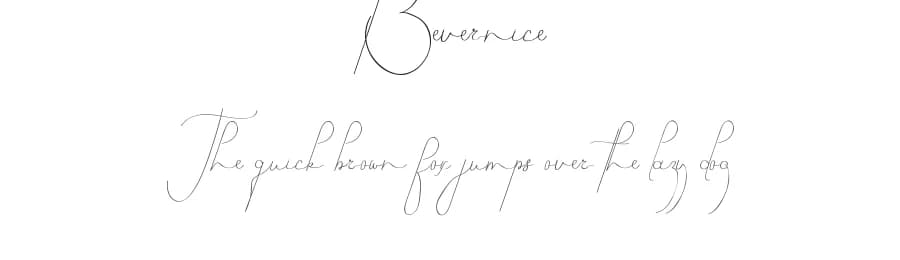 Bevernice
The quick brown fox jumps over the lazy dog